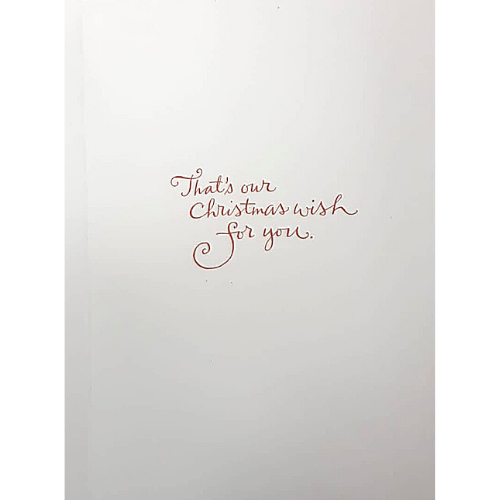 That's our
Christmas wish
for you.